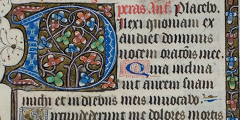 peras. Añ. Placebo.
Dilexi quoniam ex
audiet dominus
vocem orationis mee.
Quia inclina
vit aurem suam
michi et in diebus meis invocabo.
Circumdederunt me dolores mortis